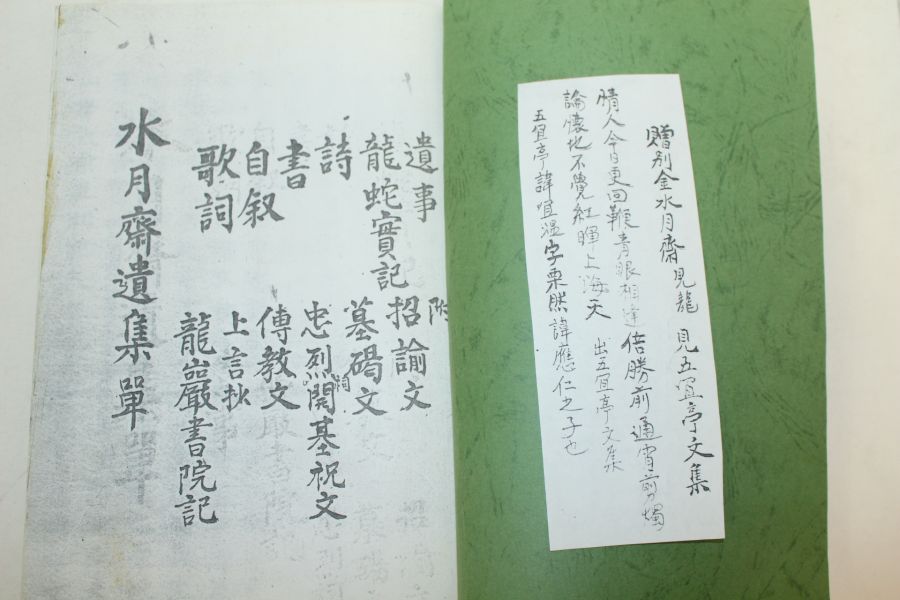 贈別金水月齋見龍 見五宜亭文集
情人今日更回鞭青眼相逢倍勝前通宵剪燭
論懷地不覺紅暉上海天 出五宜亭文集
五宜亭諱咺溫字栗然諱應仁之子也
遺事 附
龍蛇實記 招諭文
詩 墓碣文
書 忠烈祠開基祝文
自叙 傳教文
歌詞 上言抄
龍巖書院記
水月齋遺集 單